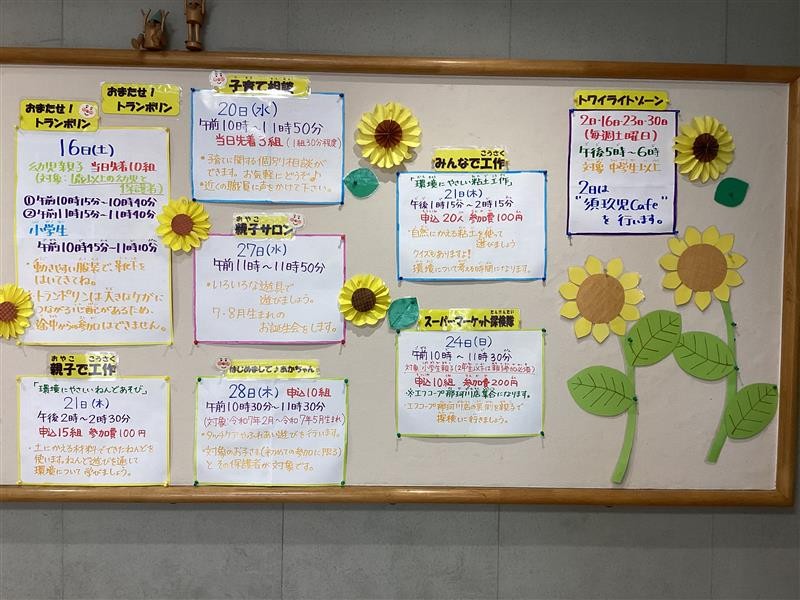 おまたせ!
トランポリン
おまたせ!
トランポリン
16日(土)
幼児親子 当日先着10組
(対象:1歳以上の幼児と
保護者)
①午前10時15分〜10時40分
②午前11時15分〜11時40分
小学生
午前10時45分〜11時10分
・動きやすい服装で、靴下を
はいてきてね。
・トランポリンは大きなケガに
つながる心配があるため、
途中からの参加はできません。
おやこ こうさく
親子で工作
「環境にやさしいねんどあそび」
21日(木)
午後2時〜2時30分
申込15組 参加費100円
・土にかえる材料でできたねんどを
使います。ねんど遊びを通して
環境について学びましょう。
子育て相談
20日(水)
午前10時〜11時50分
当日先着3組(1組30分程度)
・子育てに関する個別相談が
できます。お気軽にどうぞ♪
・近くの職員に声をかけて下さい。
おやこ
親子サロン
27日(水)
午前11時〜11時50分
・いろいろな遊具で
遊びましょう。
・7・8月生まれの
お誕生会をします。
はじめまして♪あかちゃん
28日(木) 申込10組
午前10時30分〜11時30分
(対象:令和7年2月〜令和7年5月生まれ)
・タッチケアやふれあい遊びを行います。
・対象のお子さま(初めての参加に限る)
とその保護者が対象です。
こうさく
みんなで工作
「環境にやさしい粘土工作」
21日(木)
午後1時15分〜2時15分
申込20人 参加費100円
・自然にかえる粘土を使って
遊びましょう
クイズもありますよ!
環境について考える時間になります。
たんけんたい
スーパーマーケット探検隊
24日(日)
午前10時〜11時30分
対象:小学生親子(2年生以下は親子参加必須)
申込10組 参加費200円
※エフコープ那珂川店集合になります。
・エフコープ那珂川店の裏側を親子で
探検しに行きましょう。
トワイライトゾーン
2日・16日・23日・30日
(毎週土曜日)
午後5時〜6時
対象 中学生以上
2日は
"須玖児Cafe"
を行います。